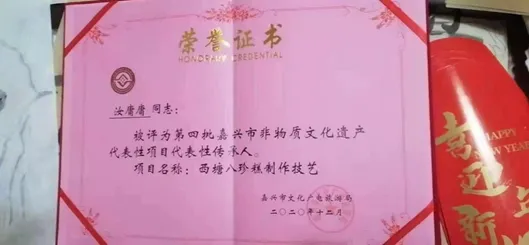 荣誉证书
HONORARY CREDENTIAL
汝庸庸 同志:
被评为第四批嘉兴市非物质文化遗产
代表性项目代表性传承人。
项目名称:西塘八珍糕制作技艺
嘉兴市文化广电旅游局
二〇二〇年十二月
HAPPY
NEW YEAR
喜
迎
新
年